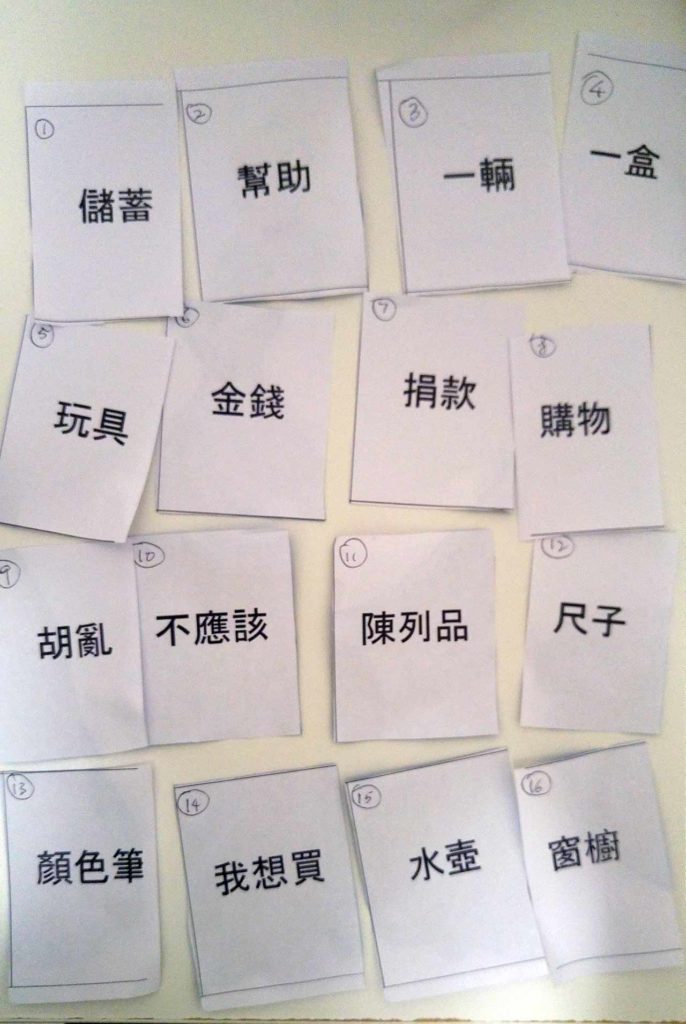 ① 儲蓄
② 幫助
③ 一輛
④ 一盒
⑤ 玩具
⑥ 金錢
⑦ 捐款
⑧ 購物
⑨ 胡亂
⑩ 不應該
⑪ 陳列品
⑫ 尺子
⑬ 顏色筆
⑭ 我想買
⑮ 水壺
⑯ 窗櫥